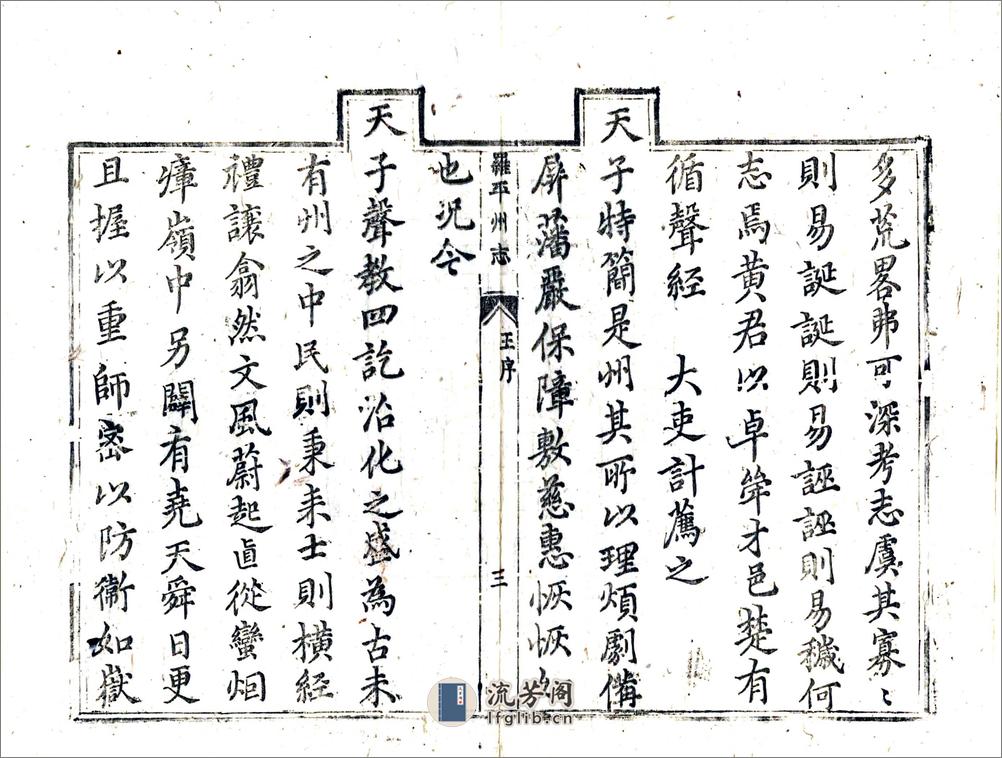 多荒畧弗可深考志虞其寡〻
則易誕誕則易誣誣則易穢何
志焉黄君以卓犖才邑楚有
循聲經 大吏計薦之
天子特簡是州其所以理煩劇備
屏藩嚴保障敷慈惠恢恢乎
羅平州志 王序 三
也况今
天子聲教四訖治化之盛為古未
有州之中民則秉耒士則横經
禮讓翕然文風蔚起直從蠻烟
瘴嶺中另闢有堯天舜日更
且握以重師密以防衞如嶽
流芳阁
lfglib.cn